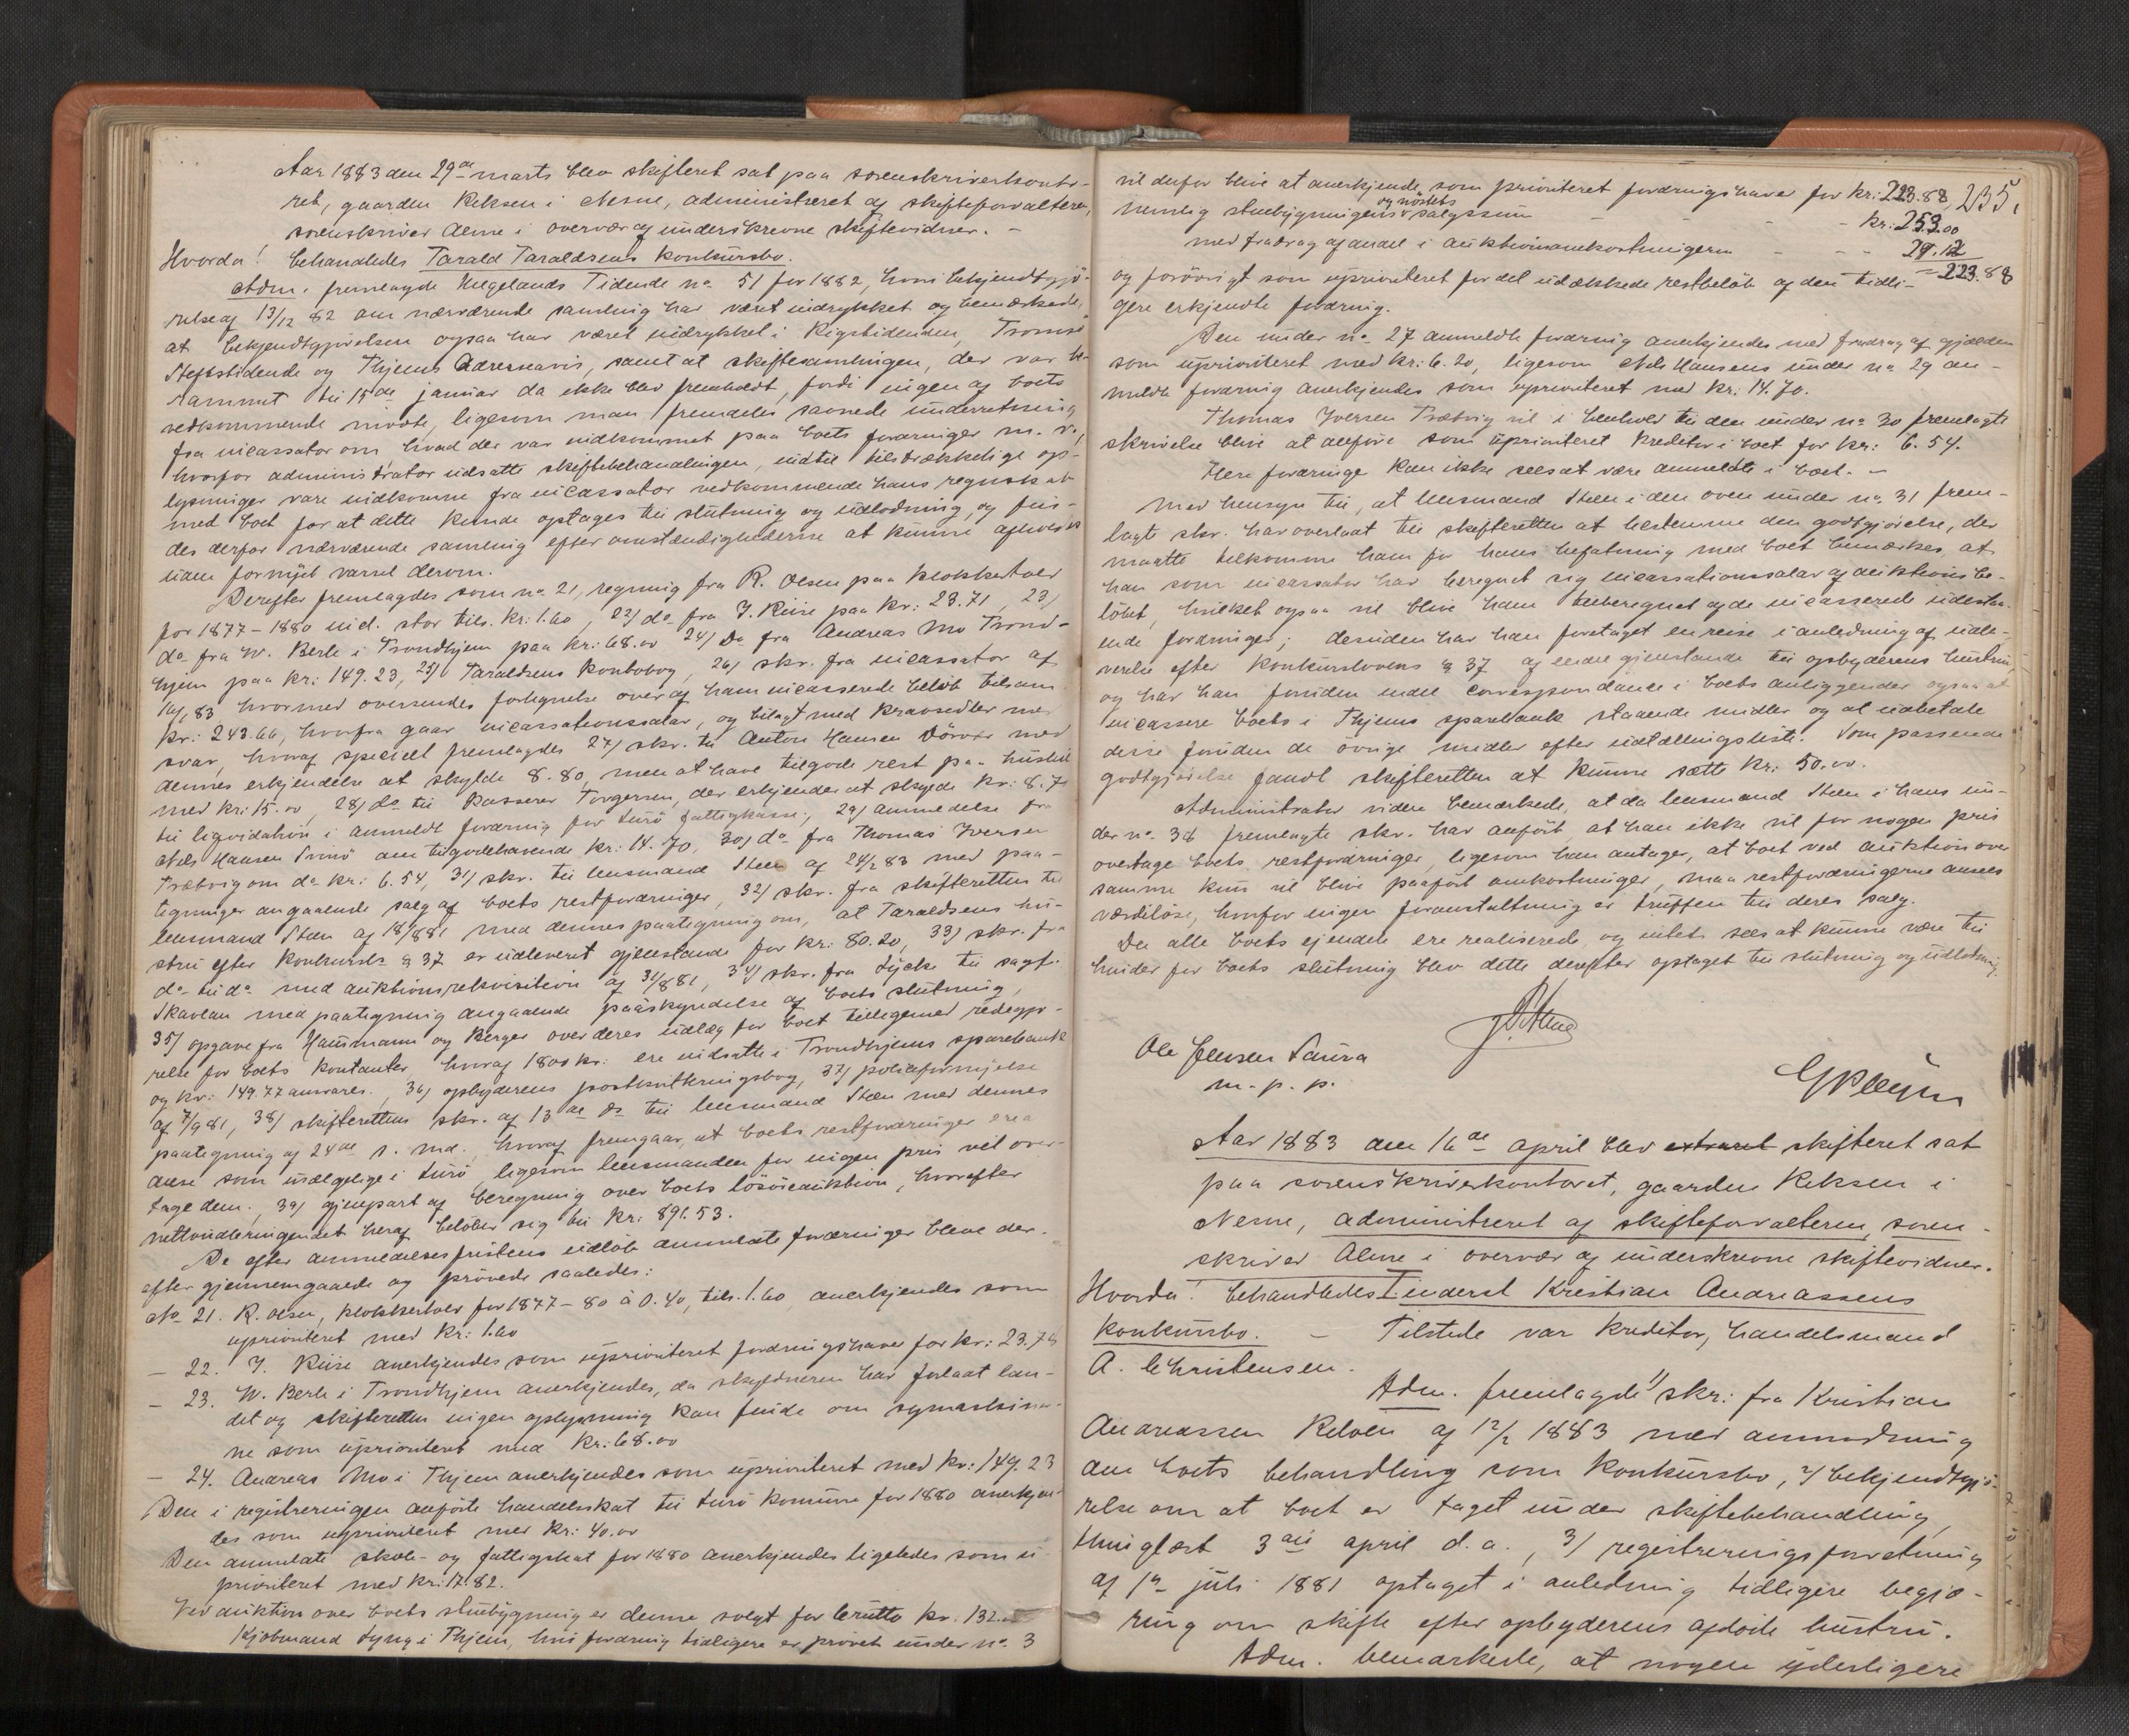 Aar 1883 den 29de marts blev skifteret sat paa sorenskriverkonto-
ret, gaarden Reksen i Nesne, administreret af skifteforvalteren,
sorenskriver Alme i overvær af underskrevne skiftevidner. –
Hvorda! behandledes Tarald Taraldsens konkursbo.
Adm. fremlagde Helgelands Tidende no 51 for 1882, hvori bekjendtgjö-
relse af 13/12 82 om nærværende samling har været indrykket og bemærkede,
at bekjendtgjørelsen ogsaa har været indrykket i Rigstidenden, Tromsö
Stiftstidende og Thjems Adresseavis, samt at skiftesamlingen, der var be-
rammet til 15de januar da ikke blev fremholdt, fordi ingen af boets
vedkommende mødte, ligesom man fremdeles savnede underretning
fra incassator om hvad der var indkommet paa boets fordringer m. v.,
hvorfor administrator udsatte skiftebehandlingen, indtil tilstrækkelige op-
lysninger vare indkomne fra incassator vedkommende hans regnskab
med boet for at dette kunde optages til slutning og udlodning, og fin-
des derfor nærværende samling efter omstændighederne at kunne afholdes
uden fornyet varsel derom.
Derefter fremlagdes som no 21, regning fra R. Olsen paa klokkertold
for 1877–1880 incl. stor tils. kr: 1.60, 22/ do fra J. Kiise paa kr: 23.71, 23/
do fra W. Berle i Trondhjem paa kr: 68.00 24/ Do fra Andreas Mo Trond-
hjem paa kr: 149.23, 25/ Taraldsens kontobog, 26/ skr. fra incassator af
83 hvormed oversendes fortegnelse over af ham incasserede beløb tilsam
kr: 243.66, hvorfra gaar incassationssalar, og bilagt med kravsedler med
svar, hvoraf specielt fremlagdes 27/ skr. til Anton Hansen Dörvær med
dennes erkjendelse at skylde 8.80, men at have tilgode rest paa husleie
med kr: 15.00, 28/ do til kasserer Torgersen, der erkjender at skylde kr: 8.70
til ligvidation i anmeldt fordring for Lurö fattigkasse, 29/ anmeldelse fra
Nels Hansen om tilgodehavende kr: 14.70, 30/ do fra Thomas Iversen
Trætvig om do kr: 6.54, 31/ skr. til lensmand Steen af 24/2 83 med paa-
tegninger angaaende salg af boets restfordringer, 32/ skr. fra skifteretten til
lensmand Steen af 18/8 81 med dennes paategning om, at Taraldsens hu-
stru efter konkursl. § 37 er udleveret gjenstande for kr: 80.20, 33/ skr. fra
do til do med auktionsrekvisition af 31/8 81, 34/ skr. fra Lycke til sagf.
Skavlan med paategning angaaende paaskyndelse af boets slutning,
35/ opgave fra Hausmann og Berger over deres udlæg for boet tilligemed redegjø-
relse for boets kontanter, hvoraf 1800 kr: ere indsatte i Trondhjems sparebank
og kr: 149.77 anvares., 36/ opbyderens postkvitteringsbog, 37/ politifornyelse
af 7/9 81, 38/ skifterettens skr. af 13de ds til lensmand Steen med dennes
paategning af 24de s. md., hvoraf fremgaar, at boets restfordringer er a
anse som usælgelige i Lurö, ligesom lensmanden for ingen pris vil over-
tage dem., 39/ gjenpart af beregning over boets lösöreauktion, hvorefter
nettoudbringendet heraf beløber sig til kr: 891.53.
De efter anmeldelsesfristens udløb anmeldte fordringer bleve der-
efter gjennemgaaede og prövede saaledes:
No 21. R. Olsen, klokkertold for 1877–80 à 0.40, tils. 1.60 anerkjendes som
uprioriteret med kr: 1.60
– 22. J. Kiise anerkjendes som uprioriteret fordringshaver for kr: 23.71
– 23. W. Berle i Trondhjem anerkjendes, da skyldneren har forladt lan-
det og skifteretten ingen oplysning kan finde om symaskin-
ne som uprioriteret med kr: 68.00
– 24. Andreas Mo i Thjem anerkjendes som uprioriteret med kr: 149.23
Den i registreringen anførte handelsskat til Lurö kommune for 1880 anerkjen-
des som uprioriteret med kr: 40.00
Den anmeldte skole- og fattigskat for 1880 anerkjendes ligeledes som u-
prioriteret med kr: 17.82.
Ved auktion over boets stuebygning er denne solgt for brutto kr. 132.00
Kjøbmand Lyng i Thjem, hvis fordring tidligere er prøvet under no. 3
235.
vil derfor blive at anerkjende som prioriteret fordringshaver for kr: 223.88,
nemlig stuebygningens og nöstets salgssum – – – kr: 253.00
med fradrag af andel i auktionsomkostningerne – – 29.12
= 223.88
og forövrigt som uprioriteret for det udækkede restbeløb af den tidli-
gere erkjendte fordring.
Den under no 27 anmeldte fordring anerkjendes med fradrag af gjælden
som uprioriteret med kr: 6.20, ligesom Nels Hansens under no 29 an-
meldte fordring anerkjendes som uprioriteret med kr: 14.70.
Thomas Iversen Trætvig vil i henhold til den under no 30 fremlagte
skrivelse blive at anføre som uprioriteret kreditor i boet for kr: 6.54.
Flere fordringer kan ikke sees at være anmeldte i boet. –
Med hensyn til, at lensmand Steen i den oven under no. 31 frem-
lagte skr. har overladt til skifteretten at bestemme den godtgjörelse, der
maatte tilkomme ham for hans befatning med boet bemærkes, at
han som incassator har beregnet sig incassationssalar af auktionsbe-
löbet, hvilket ogsaa vil blive ham tilberegnet af de incasserede udestaa-
ende fordringer; desuden har han foretaget en reise i anledning af udle-
verelse efter konkurslovens § 37 af endel gjenstande til opbyderens hustru
og har han foruden endel correspondance i boets anliggender ogsaa at
incassere boets i Thjems sparebank staaende midler og at udbetale
disse foruden de övrige midler efter udtællingsliste. Som passende
godtgjörelse fandt skifteretten at kunne sætte kr: 50.00.
Administrator videre bemærkede, at da lensmand Steen i hans un-
der no. 38 fremlagte skr. har anført at han ikke vil for nogen pris
overtage boets restfordringer, ligesom han antager, at boet ved auktion over
samme kun vil blive paaført omkostninger, maa restfordringerne ansees
værdiløse, hvorfor ingen foranstaltning er truffen til deres salg.
Da alle boets ejendele ere realiserede, og intet sees at kunne være til
hinder for boets slutning blev dette derefter optaget til slutning og udlodning.
Alme
Ole Jensen Laura
m. p. p.
Aar 1883 den 16de april blev extraret skifteret sat
paa sorenskriverkontoret, gaarden Reksen i
Nesne, administreret af skifteforvalteren, soren-
skriver Alme i overvær af underskrevne skiftevidner.
Hvorda! behandledes Inderst Kristian Andreassens
konkursbo. – Tilstede var kreditor, handelsmand
A. Christensen.
Adm. fremlagde 1/ skr: fra Kristian
Andreassen af 12/2 1883 med anmodning
om boets behandling som konkursbo, 2/ bekjendtgjö-
relse om at boet er taget under skiftebehandling,
thinglæst 3die april d. a., 3/ registreringsforretning
af 1ste juli 1881 optaget i anledning tidligere begjæ-
ring om skifte efter opbyderens afdøde hustru.
Adm. bemærkede, at nogen yderligere